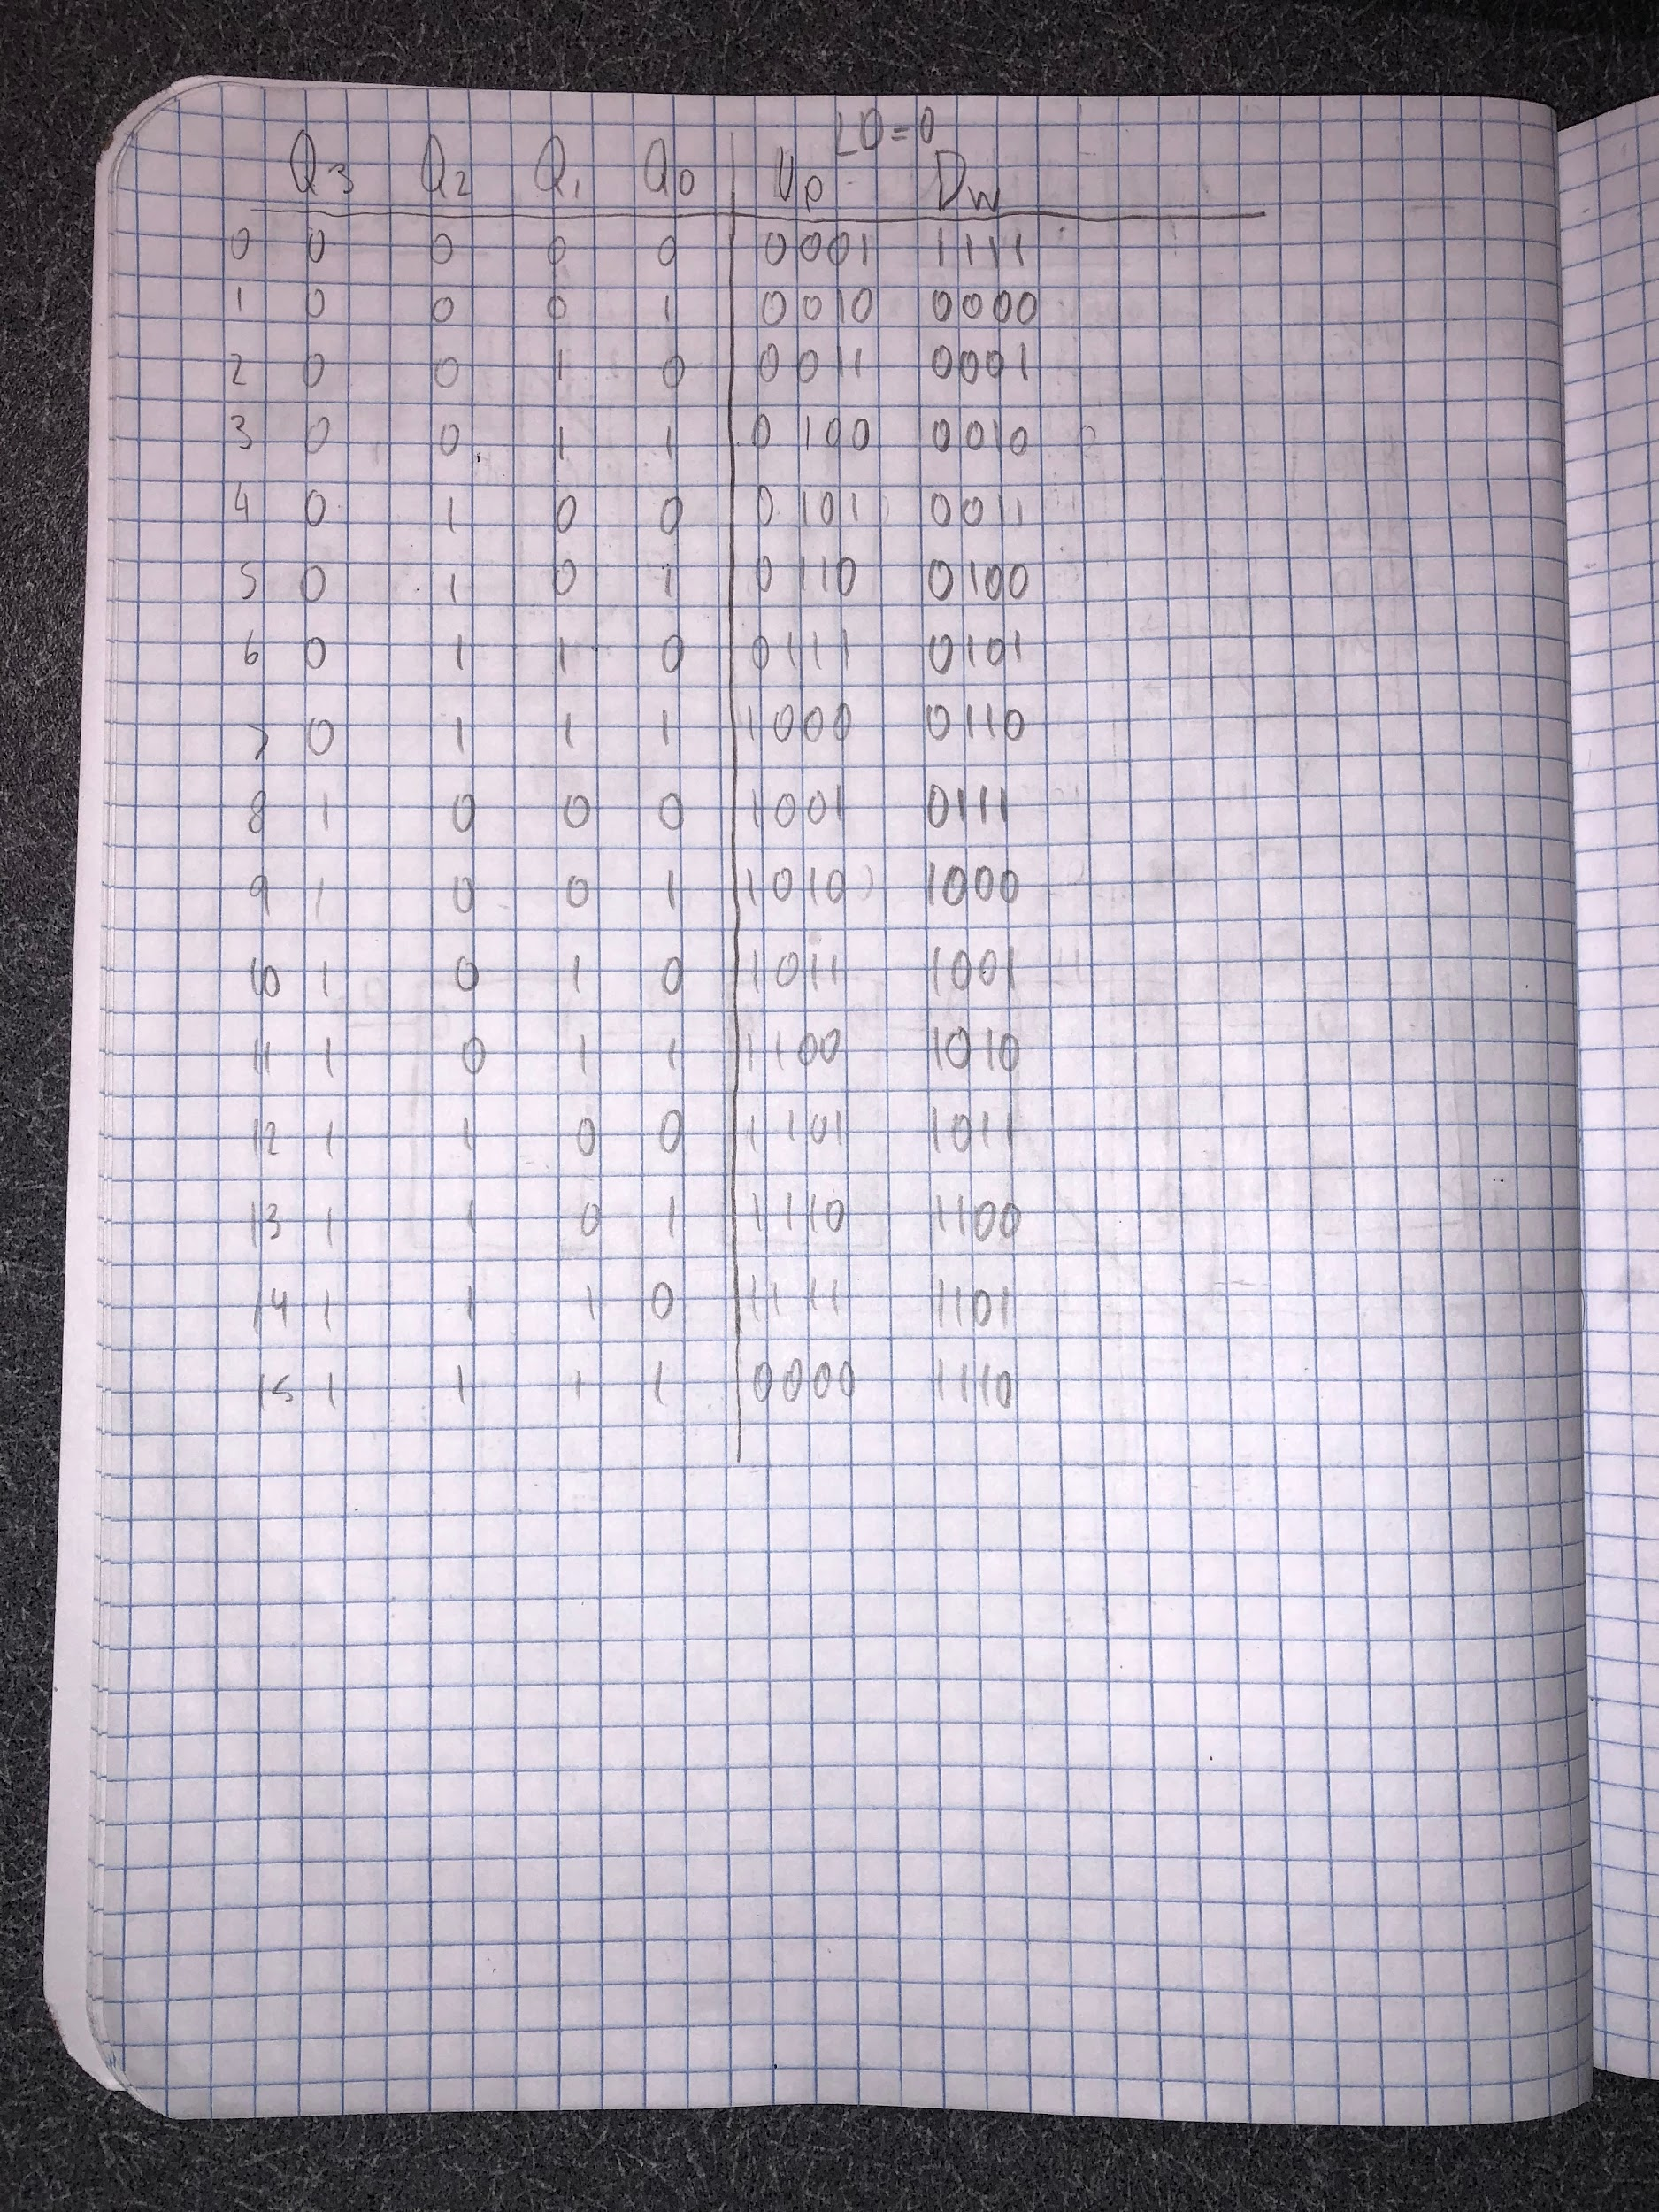 LD=0
Q3 Q2 Q1 Q0 Up Dw
0 0 0 0 0 0001 1111
1 0 0 0 1 0010 0000
2 0 0 1 0 0011 0001
3 0 0 1 1 0100 0010
4 0 1 0 0 0101 0011
5 0 1 0 1 0110 0100
6 0 1 1 0 0111 0101
7 0 1 1 1 1000 0110
8 1 0 0 0 1001 0111
9 1 0 0 1 1010 1000
10 1 0 1 0 1011 1001
11 1 0 1 1 1100 1010
12 1 1 0 0 1101 1011
13 1 1 0 1 1110 1100
14 1 1 1 0 1111 1101
15 1 1 1 1 0000 1110